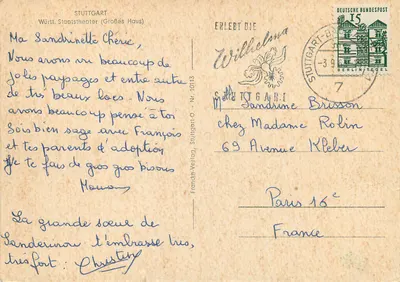 STUTTGART
Württ. Staatstheater (Großes Haus)
Ma Sandrinette Chérie,
Nous avons vu beaucoup de
jolis paysages et entre autre
de très beaux lacs. Nous
avons beaucoup pensé à toi
Sois bien sage avec François
et tes parents d'adoption
Je te fais de gros gros bisous
Maman
La grande sœur de
l'embrasse très,
très fort. Christine
ERLEBT DIE
Wilhelma
STUTTGART
STUTTGART
7
DEUTSCHE BUNDESPOST
15
BERLIN
Melle Sandrine Brisson
chez Madame Robin
69 Avenue Kléber
Paris 16e
France